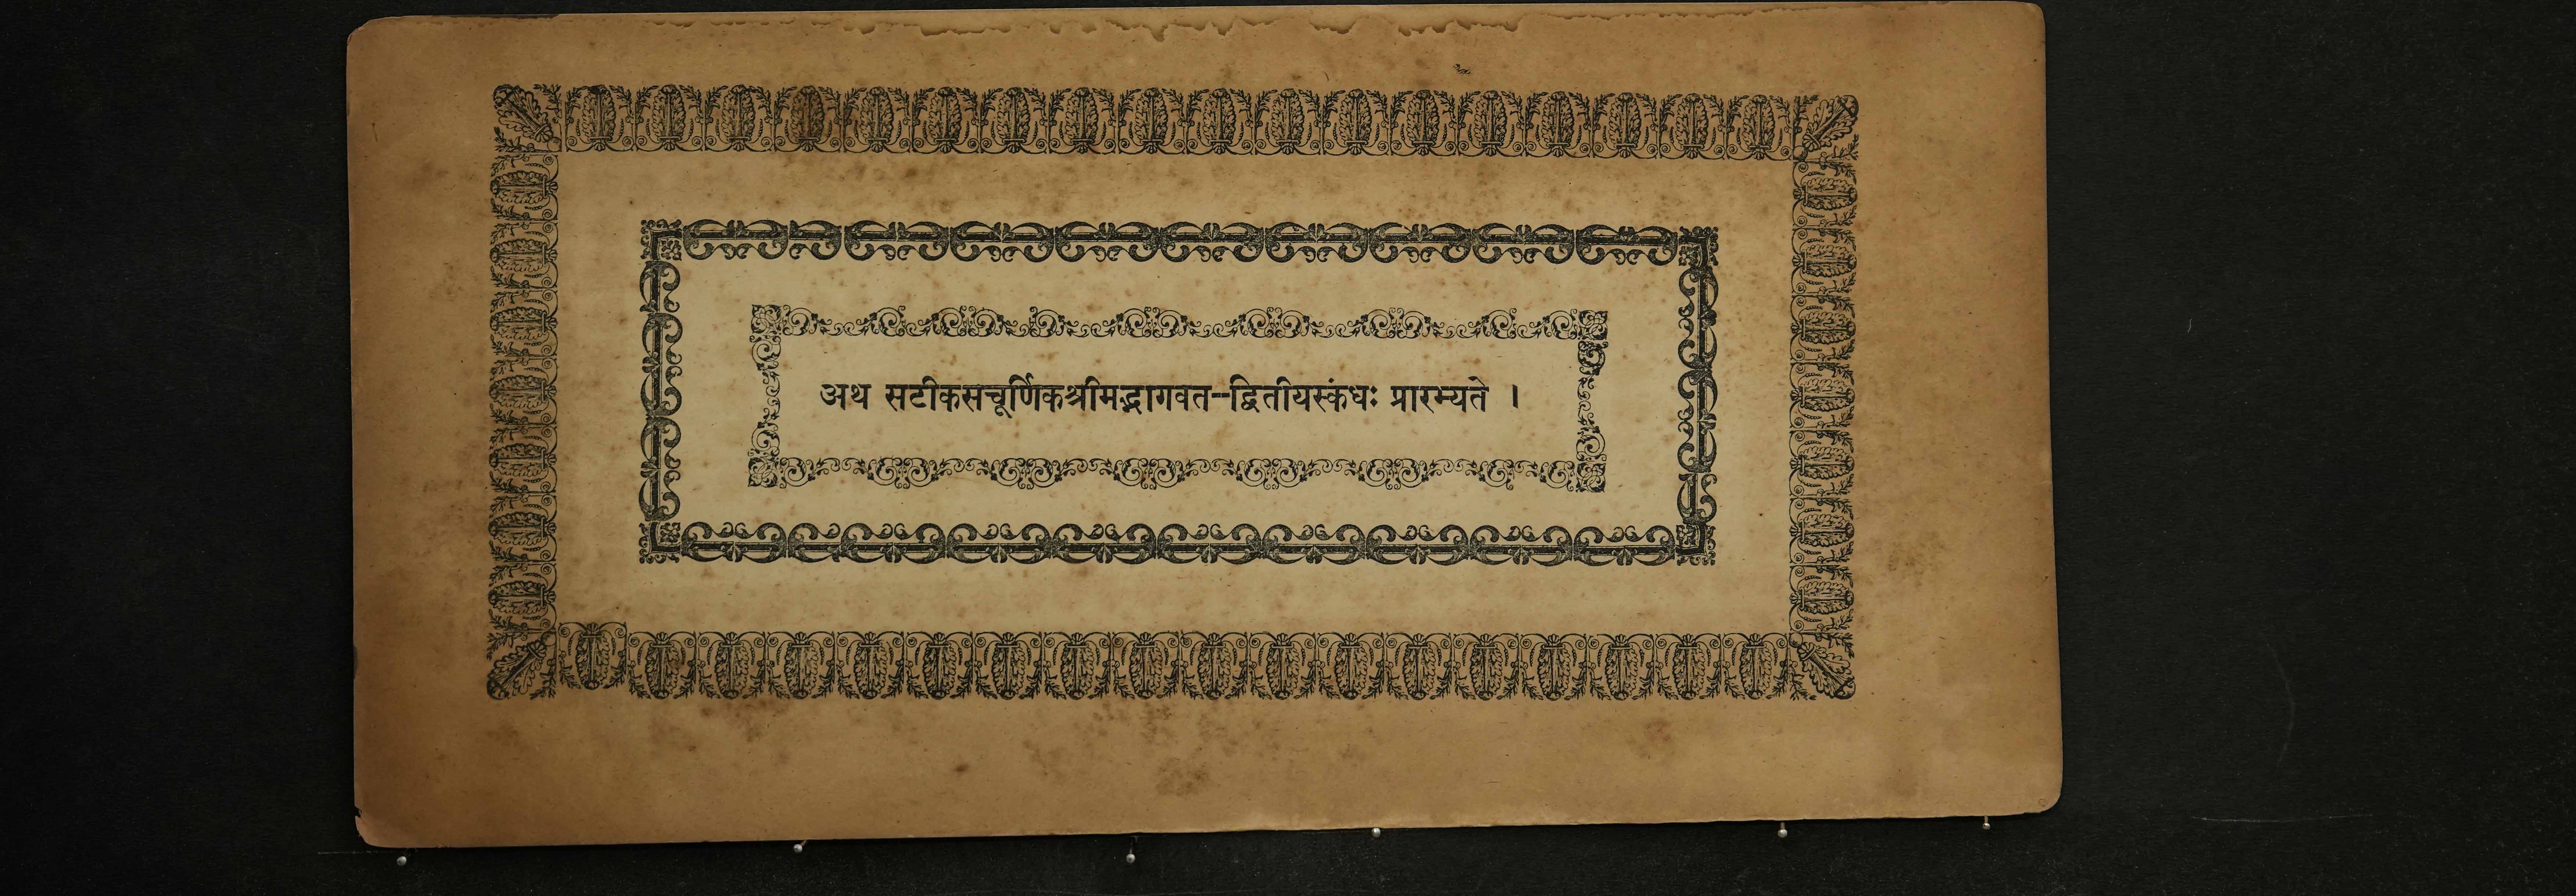 अथ सटीकसचूर्णिकश्रीमद्भागवत--द्वितीयस्कंधः प्रारम्यते ।